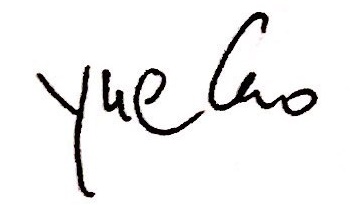 Yue Cao